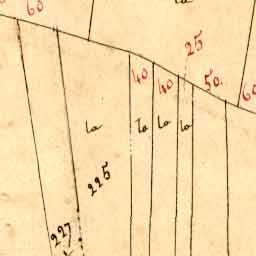 60
la
25
40
40
50.
60
la
la
la
la
225
227